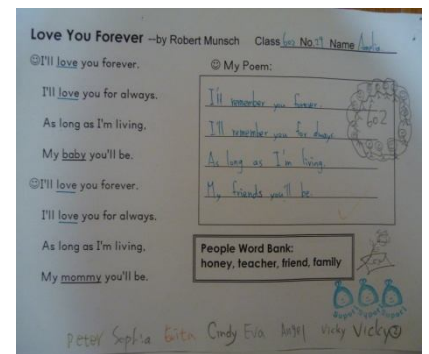 Love You Forever --by Robert Munsch Class 602 No. 29 Name
☺I'll love you forever.
I'll love you for always.
As long as I'm living,
My baby you'll be.
☺I'll love you forever.
I'll love you for always.
As long as I'm living,
My mommy you'll be.
☺ My Poem:
I'll remember you forever.
I'll remember you for always.
As long as I'm living.
My friends you'll be.
602
People Word Bank:
honey, teacher, friend, family
Super! Super! Super!
Peter Sophia Gita Cindy Eva Angel Vicky Vicky